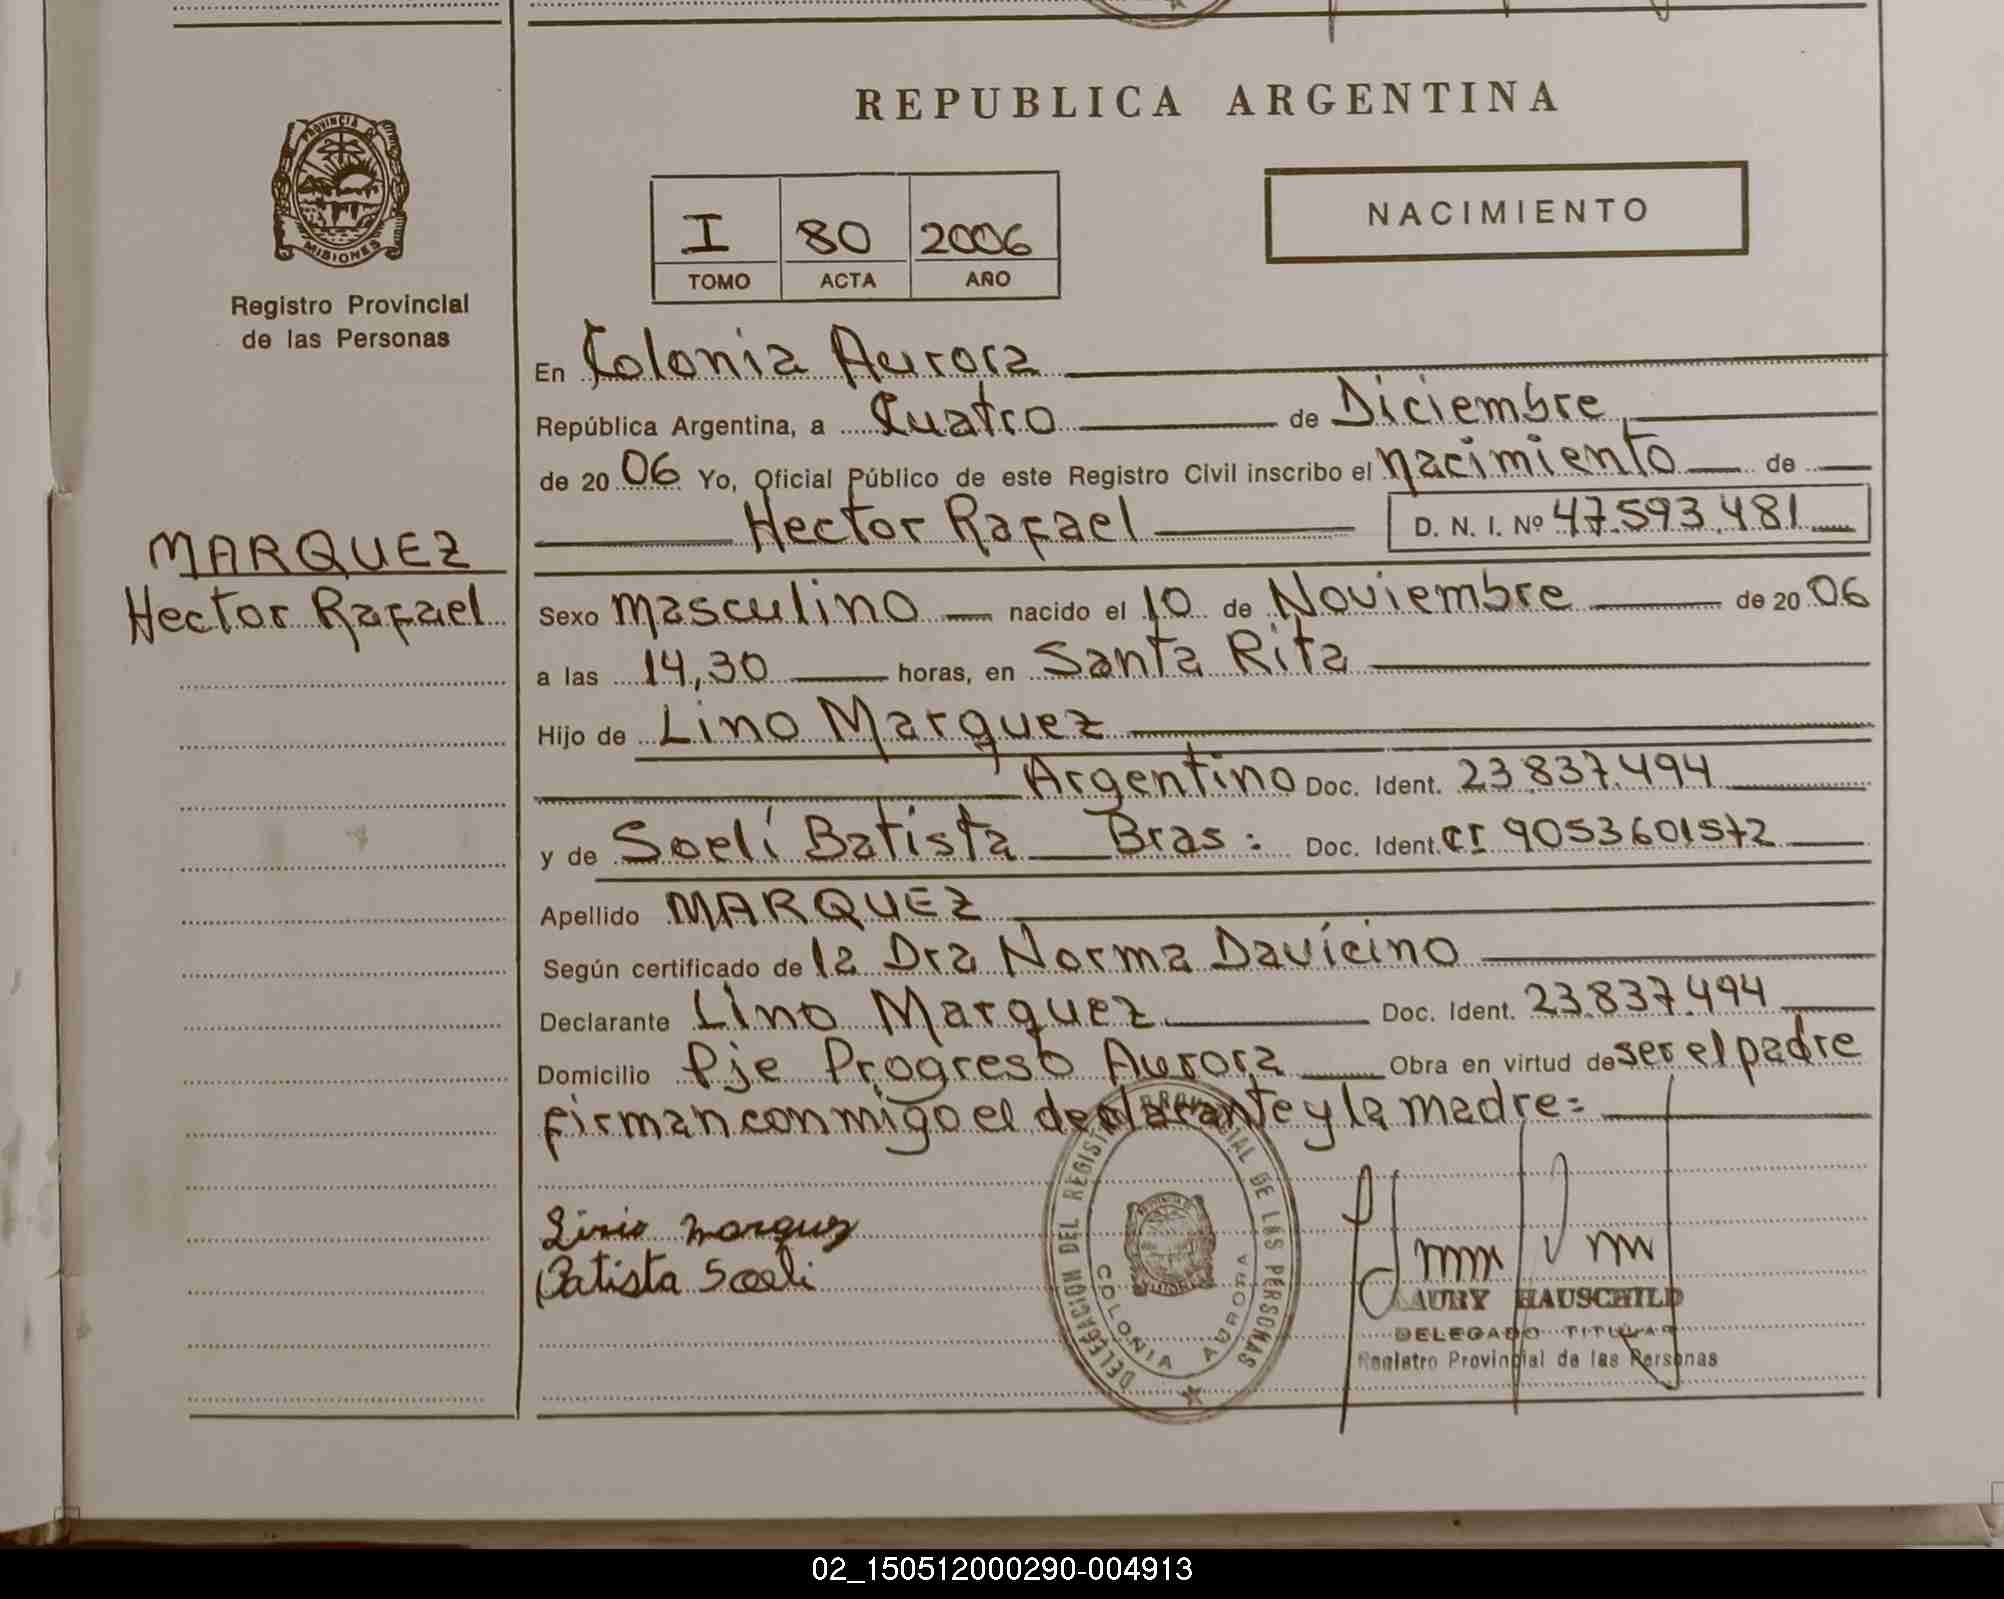 PROVINCIA D
MISIONES
Registro Provincial
de las Personas
MARQUEZ
Hector Rafael
REPUBLICA ARGENTINA
I 80 2006
TOMO ACTA AÑO
NACIMIENTO
En Colonia Aurora
República Argentina, a Cuatro de Diciembre
de 20 06 Yo, Oficial Público de este Registro Civil inscribo el nacimiento de
Hector Rafael D. N. I. Nº 47.593.481
Sexo masculino nacido el 10 de Noviembre de 20 06
a las 14,30 horas, en Santa Rita
Hijo de Lino Marquez
Argentino Doc. Ident. 23.837.494
y de Soelí Batista Bras: Doc. Ident. CI 9053601572
Apellido MARQUEZ
Según certificado de la Dra Norma Davícino
Declarante Lino Marquez Doc. Ident. 23.837.494
Domicilio Pje Progreso Aurora Obra en virtud de ser el padre
firman conmigo el declarante y la madre=
Lino Marquez
Batista Soeli
DELEGACION DEL REGISTRO PROVINCIAL DE LAS PERSONAS
COLONIA AURORA
AURY HAUSCHILD
DELEGADO TITULAR
Registro Provincial de las Personas
02_150512000290-004913